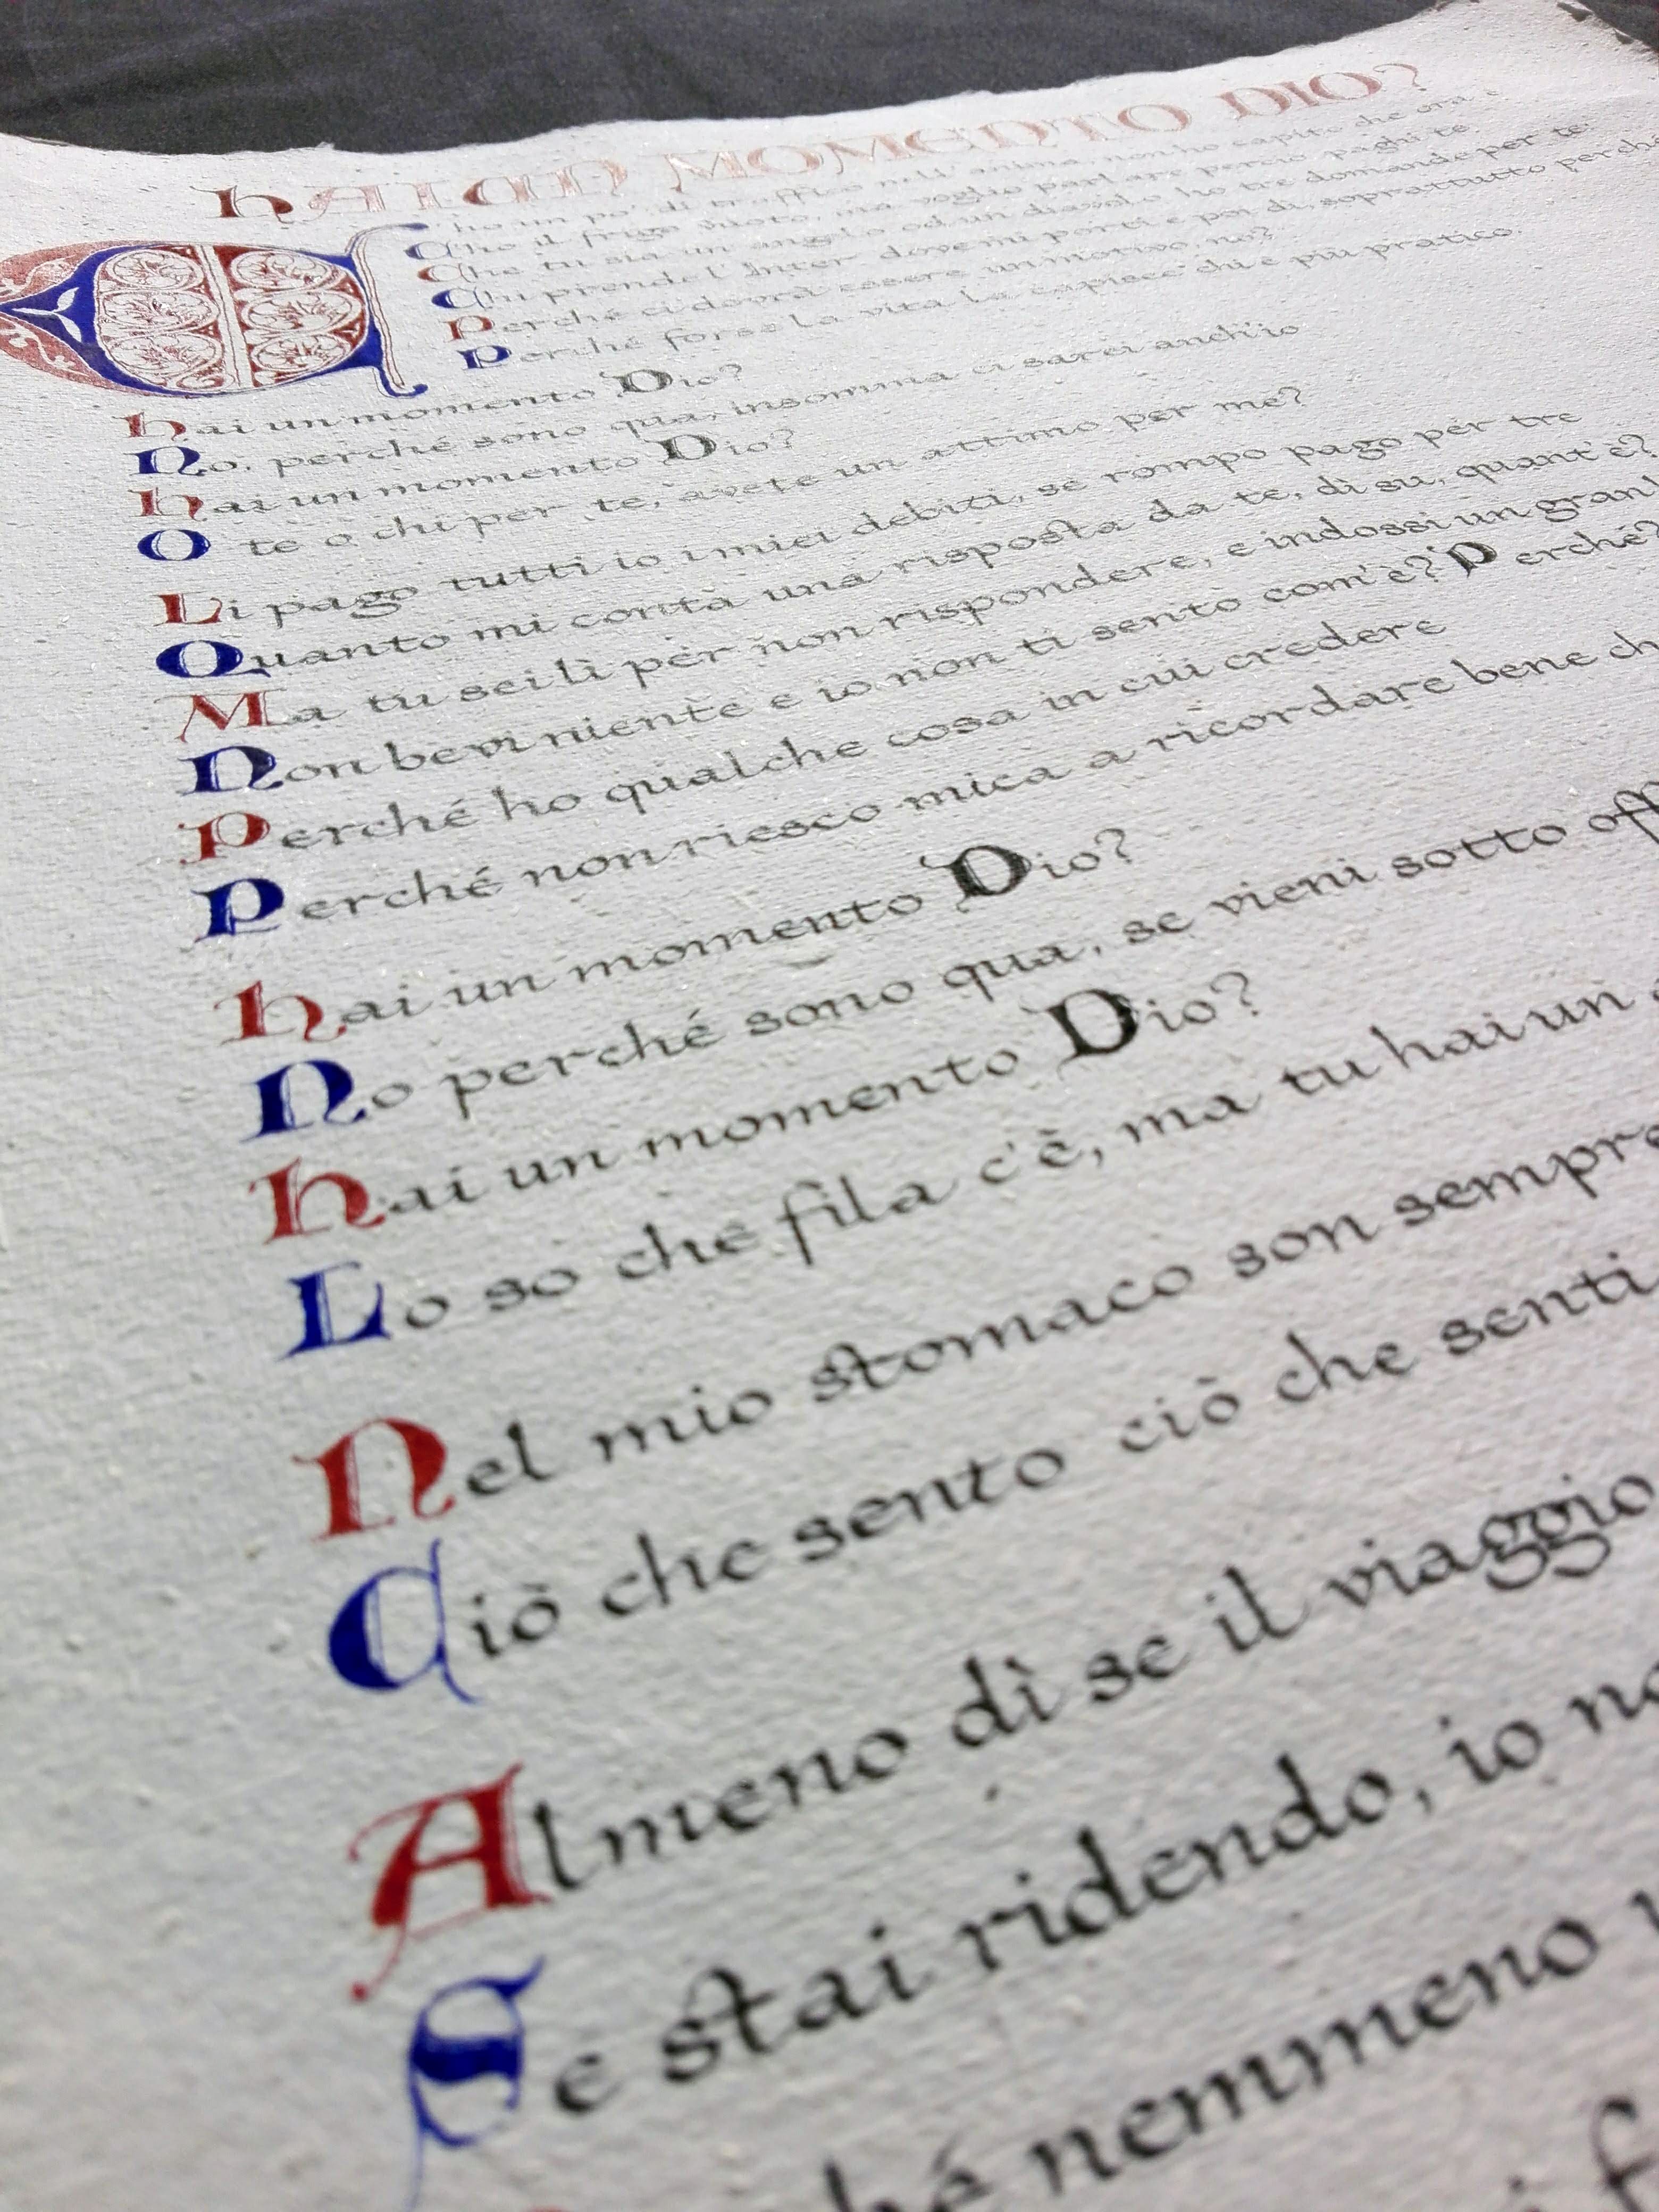 HAI UN MOMENTO DIO?
C'ho un po' di traffico nell'anima non ho capito che ora è
C'ho il frigo vuoto, ma voglio parlare perciò paghi te.
Che tu sia un angelo od un diavolo ho tre domande per te:
Chi prende l'Inter dove mi porti e poi di, soprattutto perché
Perché ci dovrà essere un motivo, no?
Perché forse la vita la capisce chi è più pratico.
hai un momento Dio?
No, perché sono qua, insomma ci sarei anch'io
hai un momento Dio?
O te o chi per te, avete un attimo per me?
Li pago tutti io i miei debiti, se rompo pago per tre
Quanto mi conta una risposta da te, di su, quant'è?
Ma tu sei lì per non rispondere, e indossi un gran
Non bevi niente e io non ti sento com'è? Perché?
Perché ho qualche cosa in cui credere
Perché non riesco mica a ricordare bene ch
hai un momento Dio?
No perché sono qua, se vieni sotto off
hai un momento Dio?
Lo so che fila c'è, ma tu hai un
Nel mio stomaco son sempre
Ciò che sento ciò che senti
Almeno dì se il viaggio
Se stai ridendo, io no
ché nemmeno